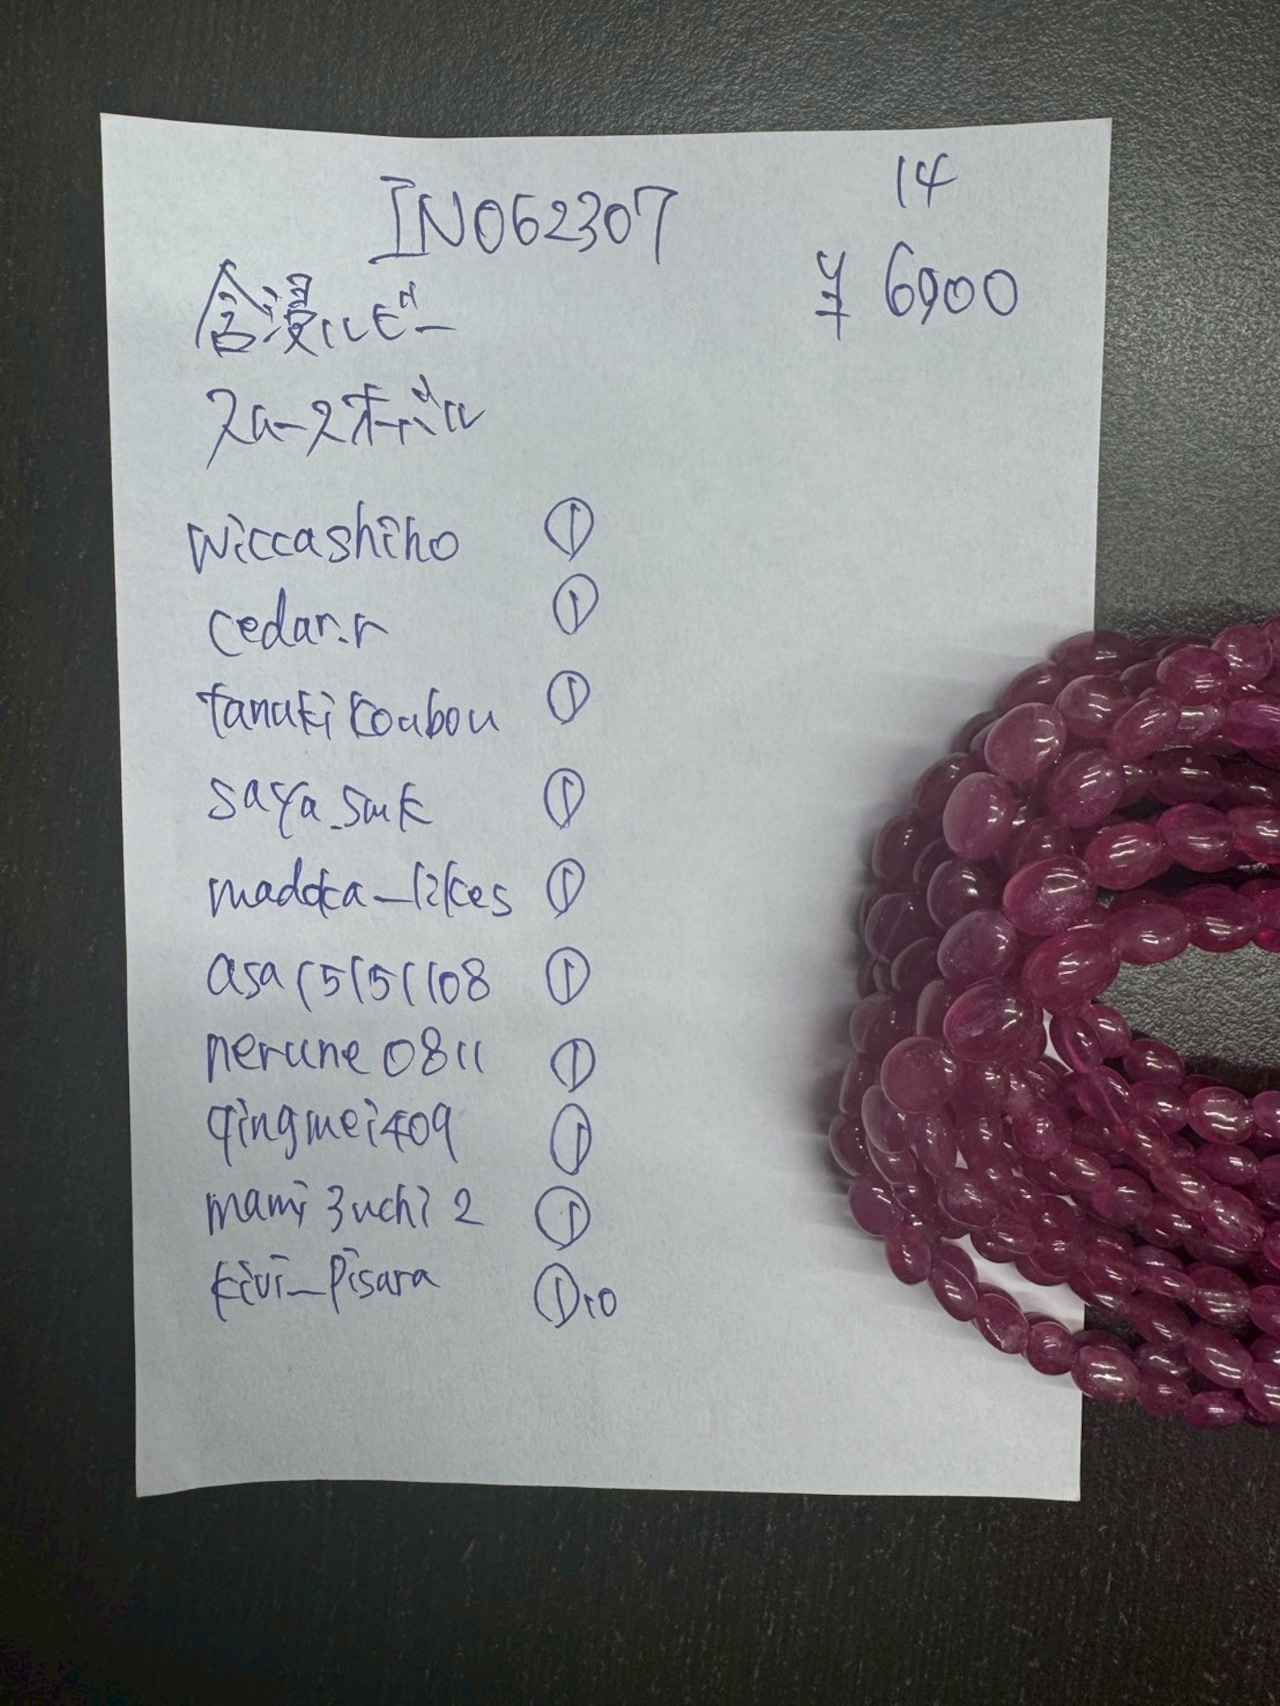 IN062307
14
¥ 6900
含浸ルビー
スムースオーバル
wiccashiho ①
cedar.r ①
tanukikoubou ①
saya_smk ①
madoka_likes ①
asa15151108 ①
nerune0811 ①
qingmei409 ①
mami3uchi2 ①
kivi_pisara ①10